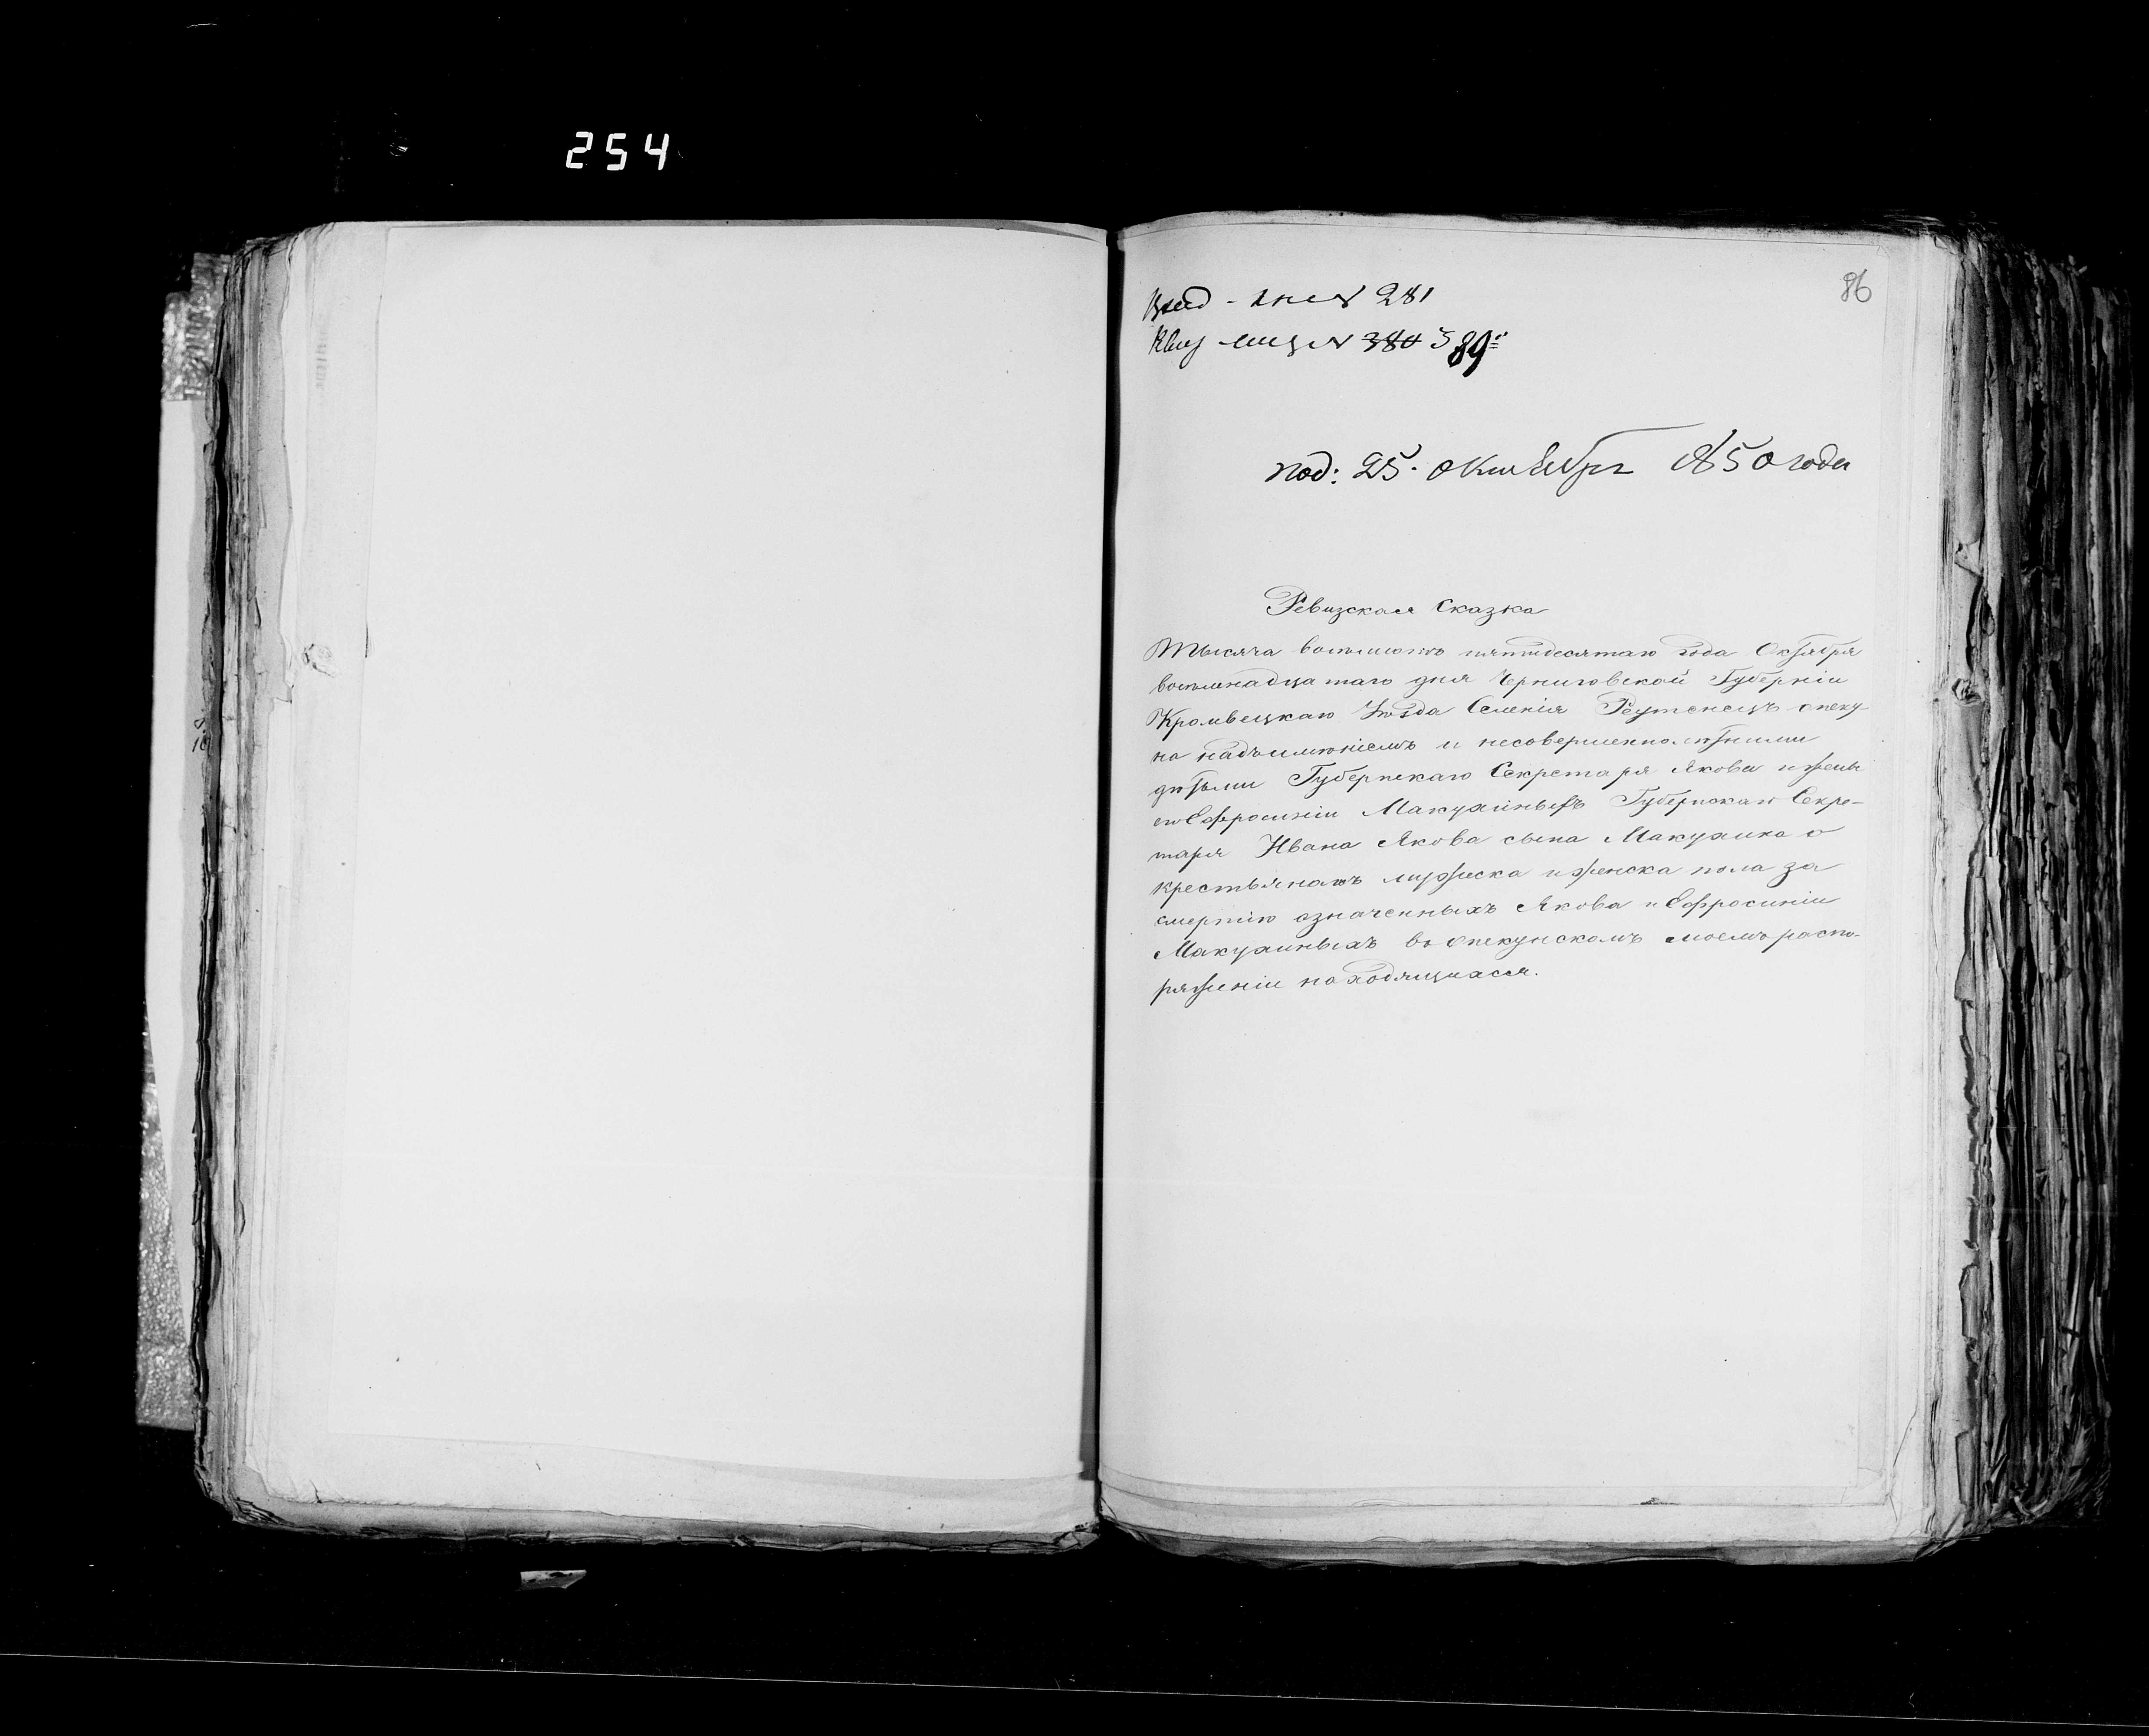 254
86
№ 281
№ 380 389
под: 25. Октября 1850 года
Ревизская Сказка
Тысяча восемьсотъ пятидесятаго года Октября
восемьнадцатаго дня Черниговской Губерніи
Кролевецкаго Уѣзда Селенія Реутенецъ опеку-
на надъ имѣніемъ и несовершеннолѣтними
дѣтьми Губернскаго Секретаря Якова и жены
его Ефросиніи Макухиныхъ Губернскаго Секре-
таря Ивана Якова сына Макухина о
крестьянахъ мужеска и женска пола за
смертію означенныхъ Якова и Ефросиніи
Макухиныхъ въ опекунскомъ моемъ распо-
ряженіи находящихся.